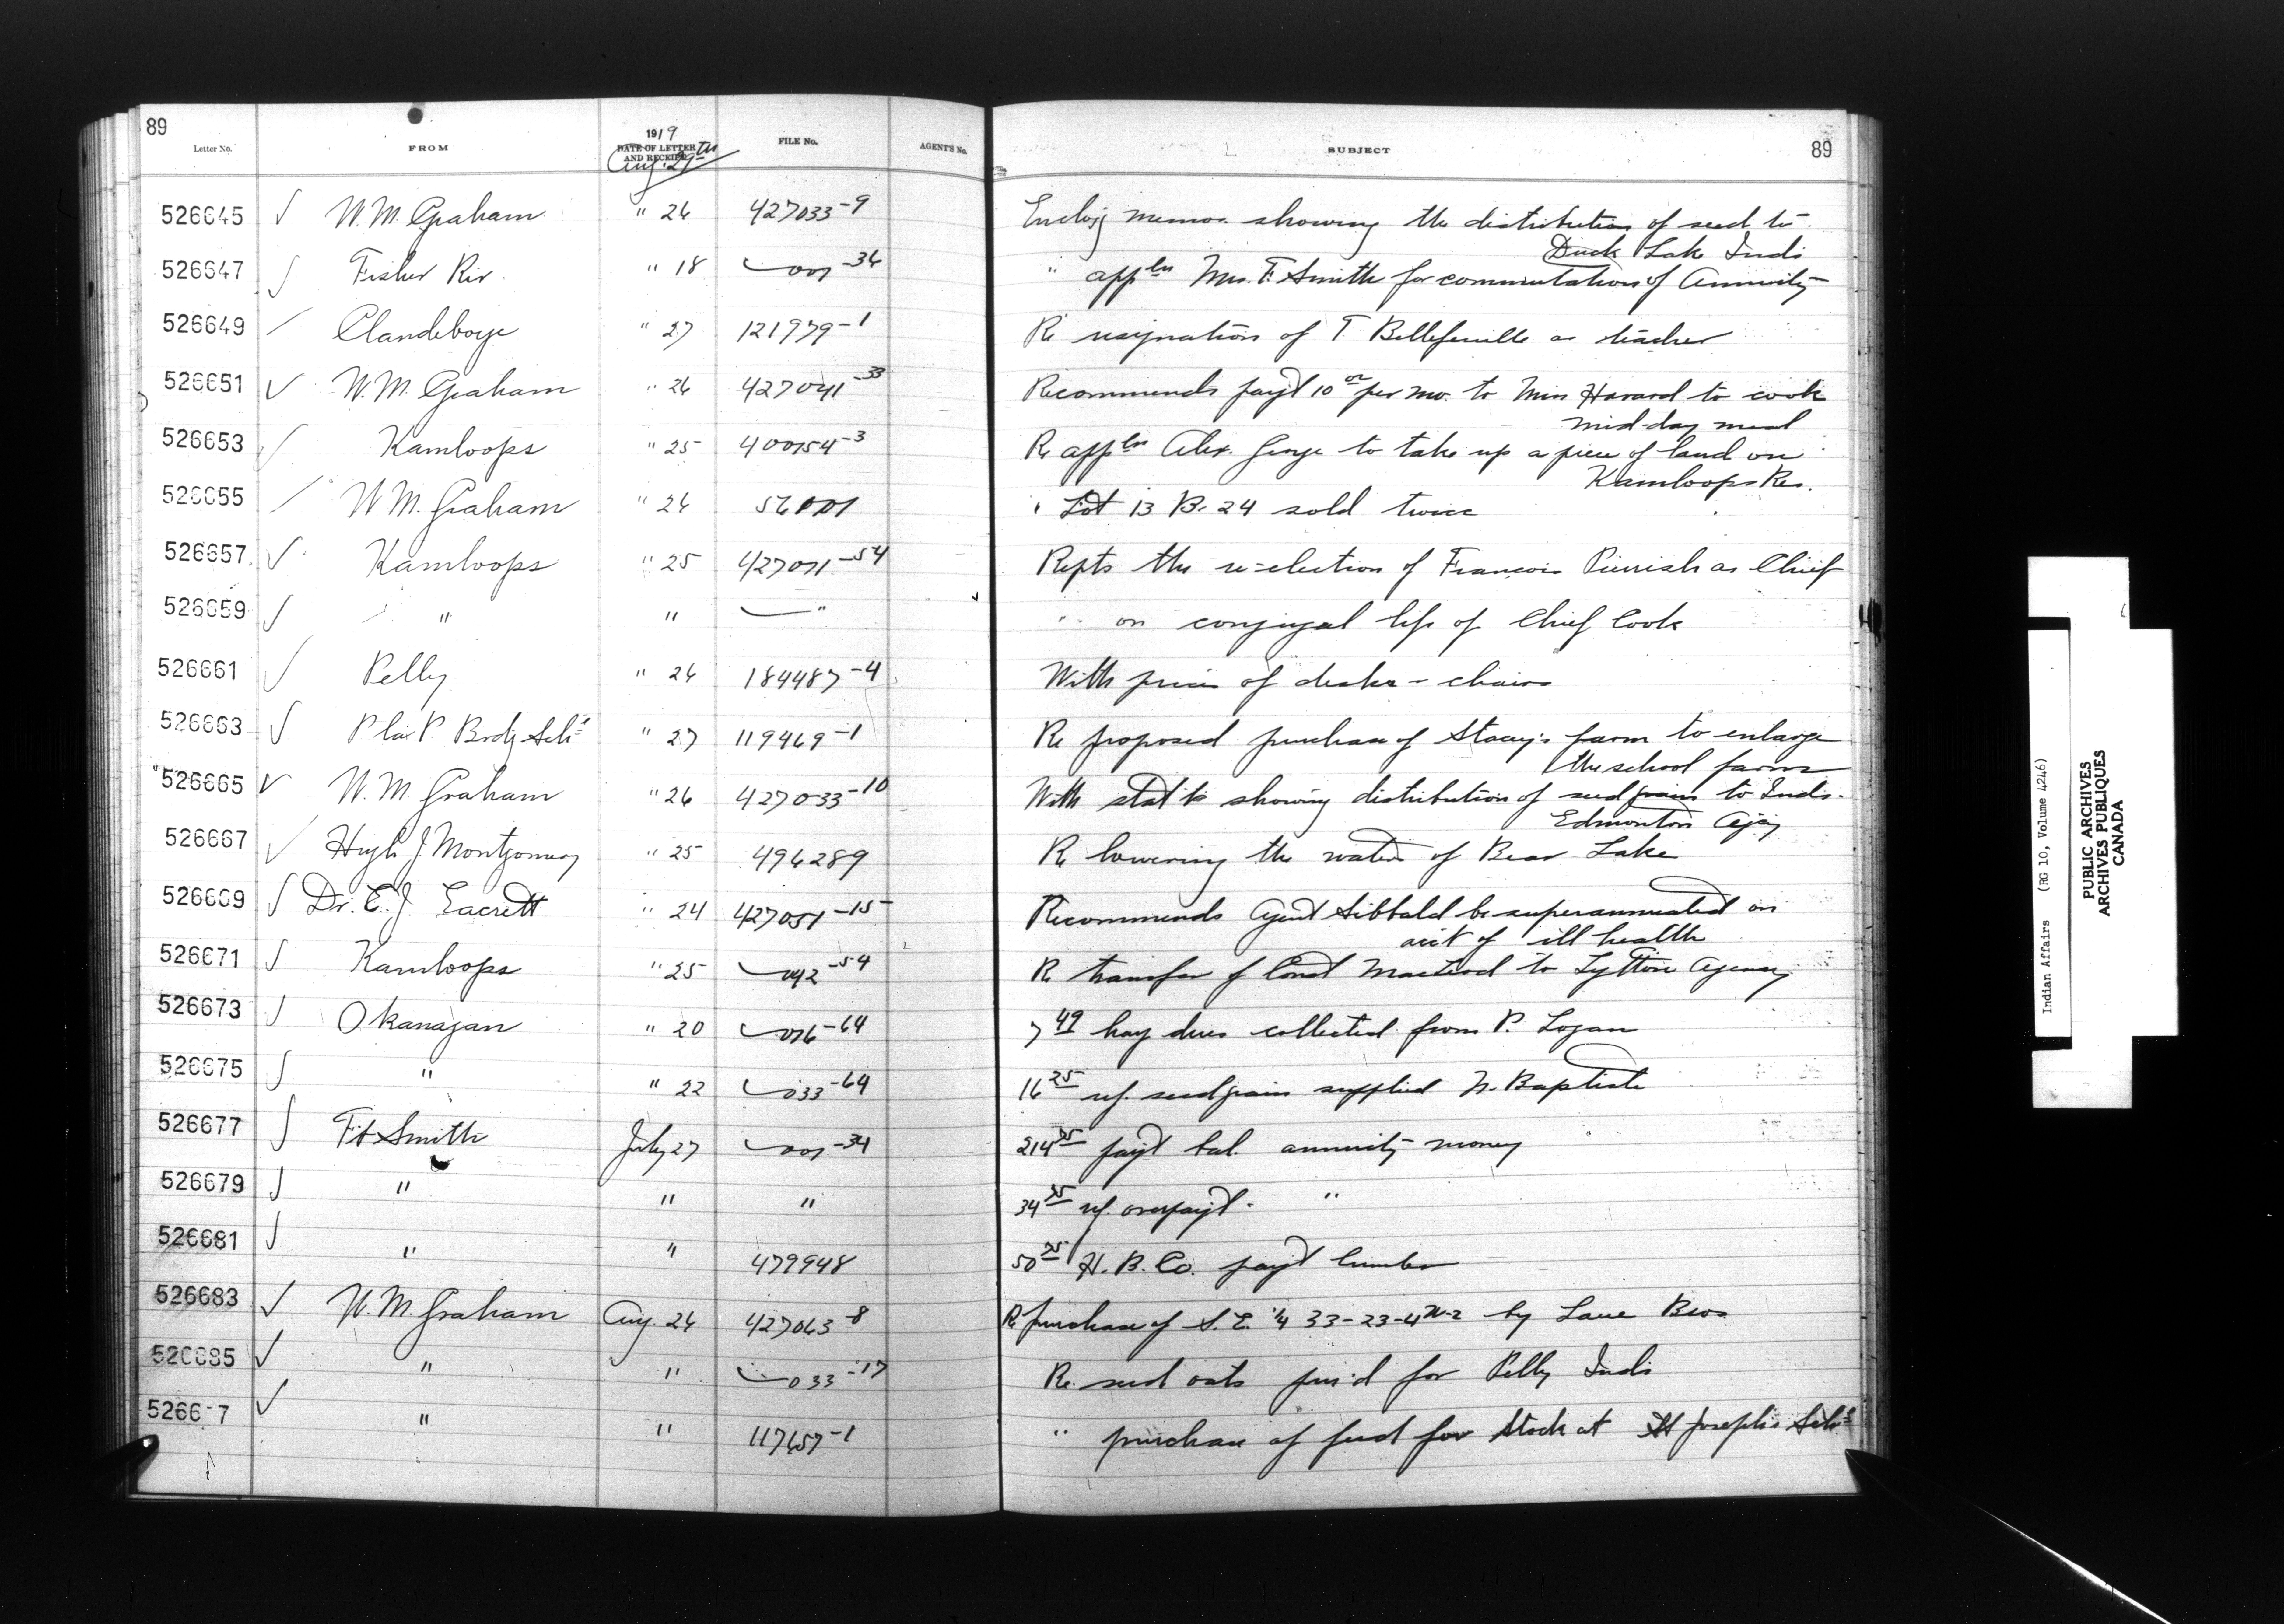 89
Letter No. FROM 1919 DATE OF LETTER AND RECEIPT FILE No. AGENT'S No. SUBJECT 89
Aug. 29th
526645 W. M. Graham " 26 427033-9 Enclosg memos. showing the distribution of seed to
Duck Lake Inds
526647 Fisher Riv. " 18 001-34 " appln Mrs. F. Smith for commutation of Annuity
526649 Clandeboye " 27 121979-1 Re resignation of T Bellefeuille as teacher
526651 W. M. Graham " 26 427041-33 Recommends payt 10 00 per mo. to Miss Havard to cook
mid-day meal
526653 Kamloops " 25 400154-3 Re appln Alex. George to take up a piece of land on
Kamloops Res.
526655 W M. Graham " 26 56001 " Lot 13 B. 24 sold twice
526657 Kamloops " 25 427071-54 Repts the re-election of Francois Pierrish as Chief
526659 " " " " on conjugal life of Chief Cook
526661 Pelly " 26 184487-4 With prices of desks - chairs
526663 P la P Brdg Schl " 27 119469-1 Re proposed purchase of Stacey's farm to enlarge
the school farm
526665 W. M. Graham " 26 427033-10 With statt showing distribution of seed grain to Inds.
Edmonton Agcy
526667 Hugh J. Montgomery " 25 496289 Re lowering the waters of Bear Lake
526669 Dr. E. J. " 24 427051-15 Recommends Agent Sibbald be superannuated on
acct of ill health
526671 Kamloops " 25 042-54 Re transfer of Const MacLeod to Lytton Agency
526673 Okanagan " 20 076-64 7 49 hay dues collected from P. Logan
526675 " " 22 033-64 16 25 rf. seed grain supplied N. Baptiste
526677 Ft Smith July 27 001-34 214 payt bal. annuity money
526679 " " " 34 rf. overpayt. "
526681 " " 479948 50 H. B. Co. payt lumber
526683 W. M. Graham Aug. 26 427063-8 Re purchase of S. E. 1/4 33-23-4 W-2 by Bros
526685 " " 033-17 Re. seed oats pur'd for Pelly Inds
5266 7 " " 117657-1 " purchase of feed for stock at St Joseph's Schl
Indian Affairs (RG 10, Volume 4246)
PUBLIC ARCHIVES
ARCHIVES PUBLIQUES
CANADA